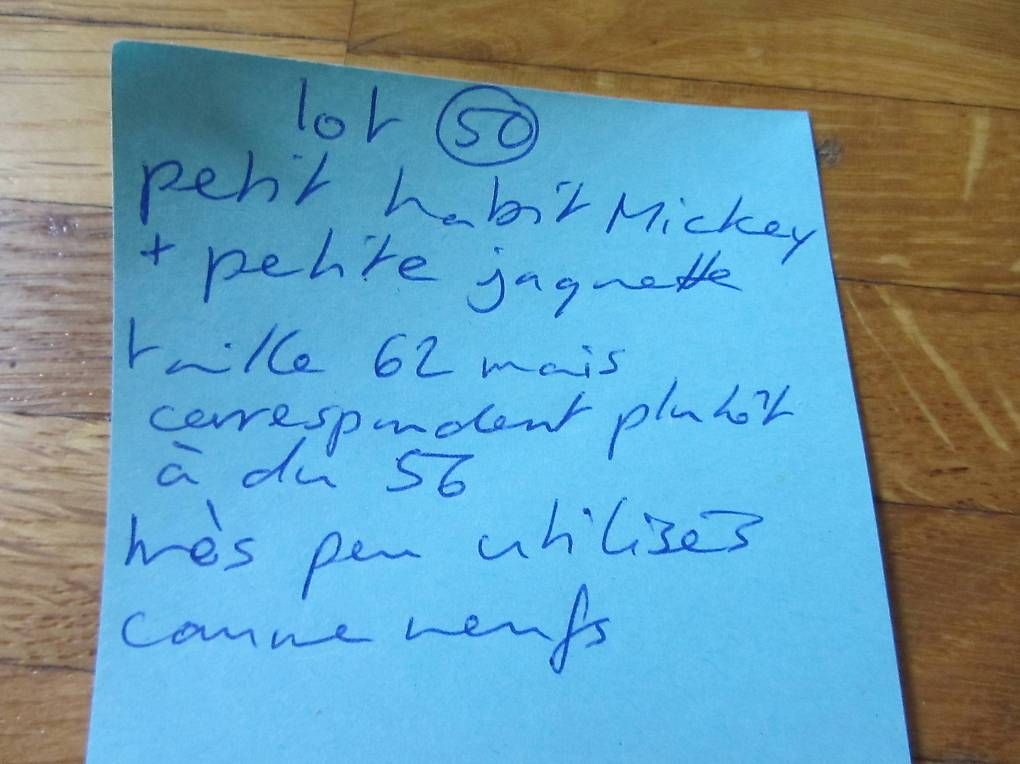 lot 50
petit habit Mickey
+ petite jaquette
taille 62 mais
correspondent plutôt
à du 56
très peu utilisés
comme neufs